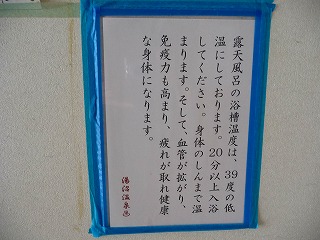 露天風呂の浴槽温度は、39度の低
温にしております。20分以上入浴
してください。身体のしんまで温
まります。そして、血管が拡がり、
免疫力も高まり、疲れが取れ健康
な身体になります。
湯沼温泉